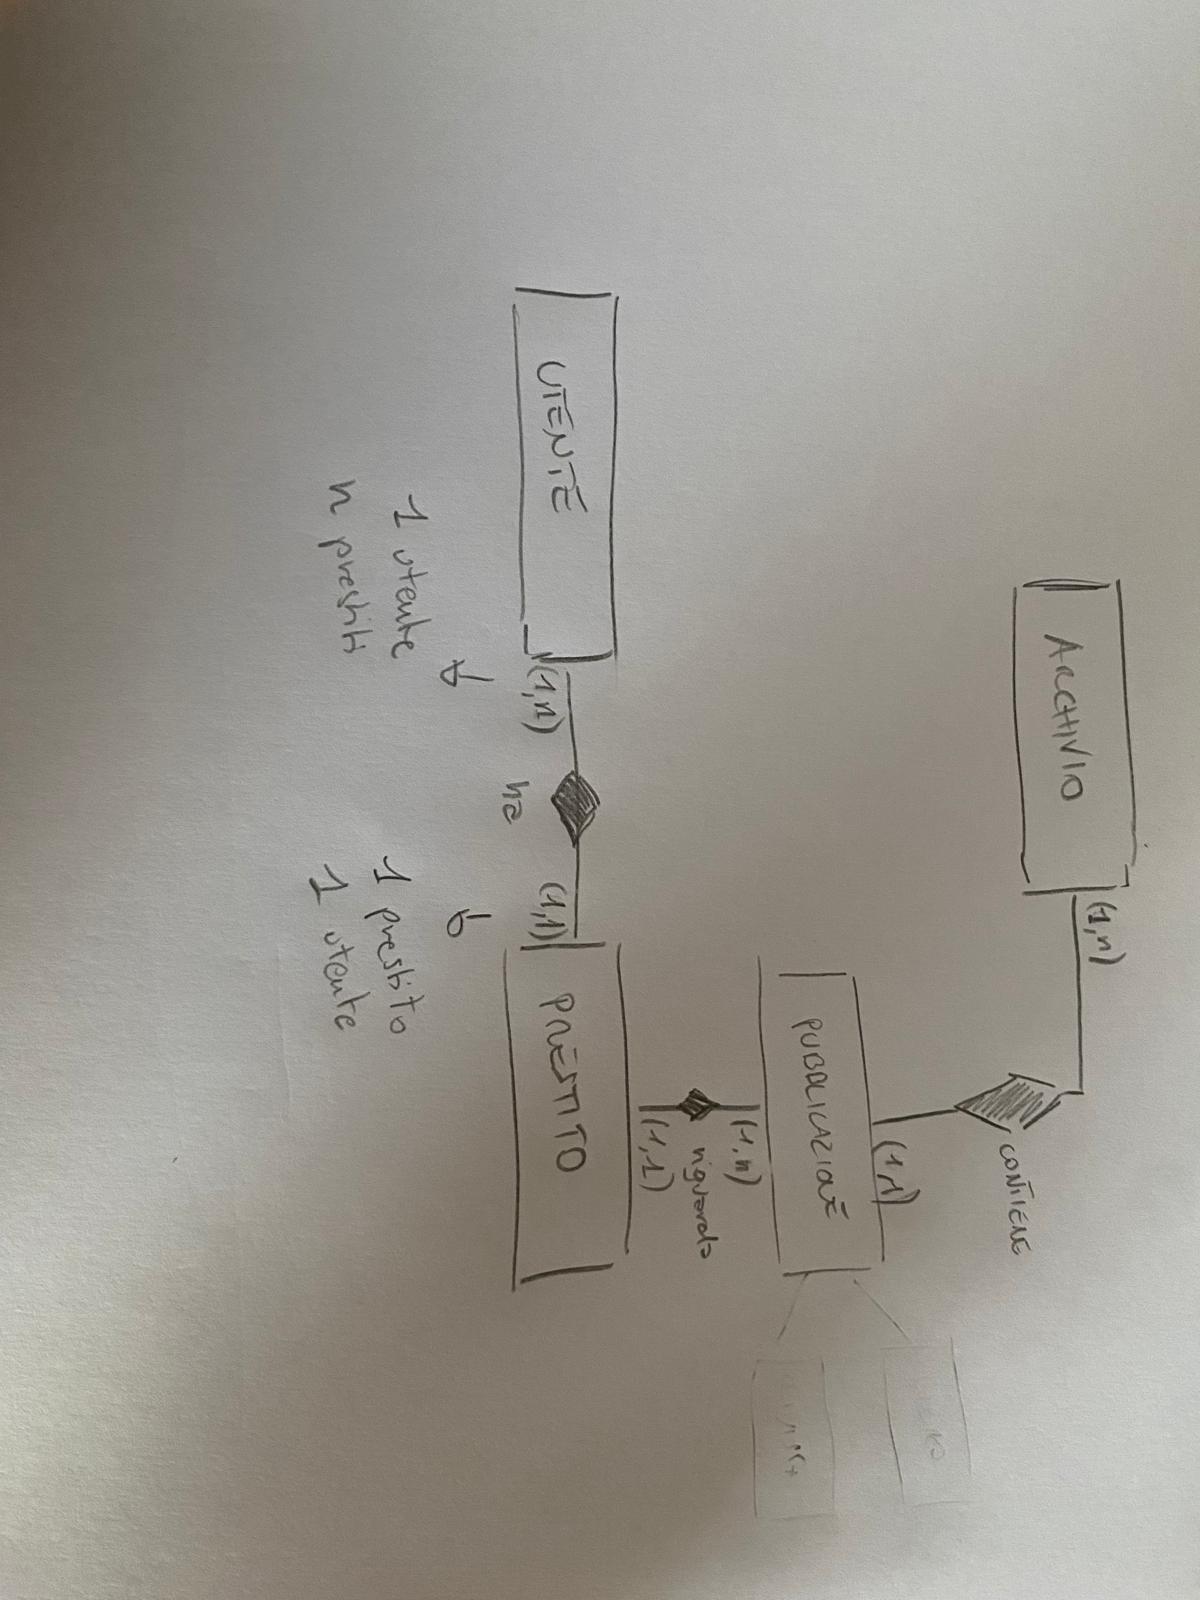 ARCHIVIO
(1,n)
CONTIENE
(1,1)
PUBBLICAZIONE
(1,n)
riguarda
(1,1)
UTENTE
(1,n)
ha
(1,1)
PRESTITO
1 utente
n prestiti
1 prestito
1 utente